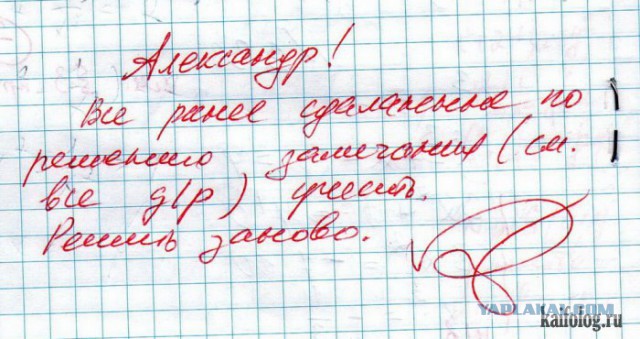 Александр!
Все ранее сделанные по
решению замечания (см.
все д/р) учесть.
Решить заново.
YAPLAKAL.COM
kaifolog.ru